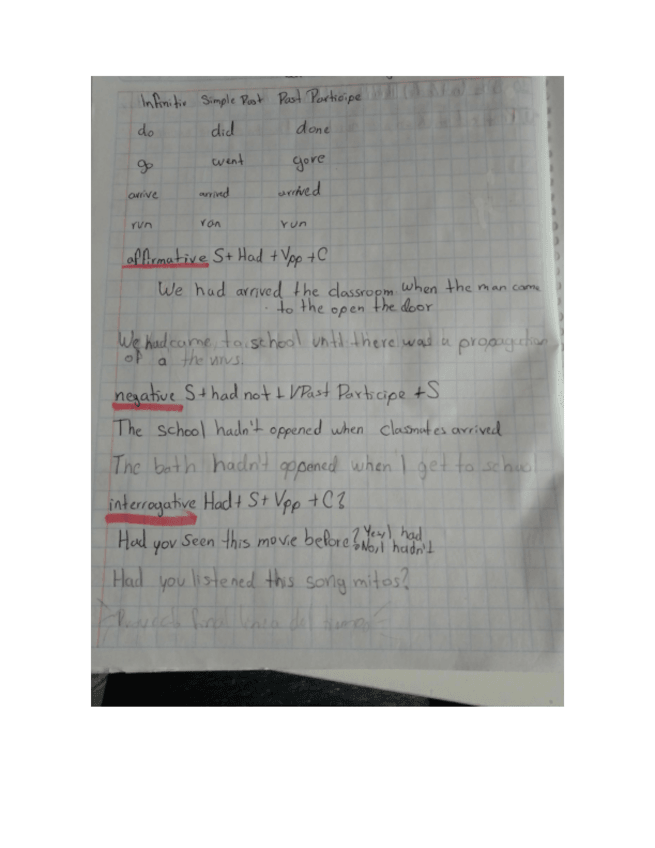 Infinitic Simple Past Past Participe
do did done
go went gove
arrive arrived arrived
run ran run
affirmative S+ Had + Vpp + C
We had arrived the classroom when the man came
to the open the door
We had came to school until there was a propagation
of a the virus.
negative S + had not + VPast Participe + S
The school hadn't oppened when clasmates arrived
The both hadn't oppened when I get to school
interrogative Had + S + Vpp + C?
Had you seen this movie before? Yes, I had
No, I hadn't
Had you listened this song mitos?
final linea del